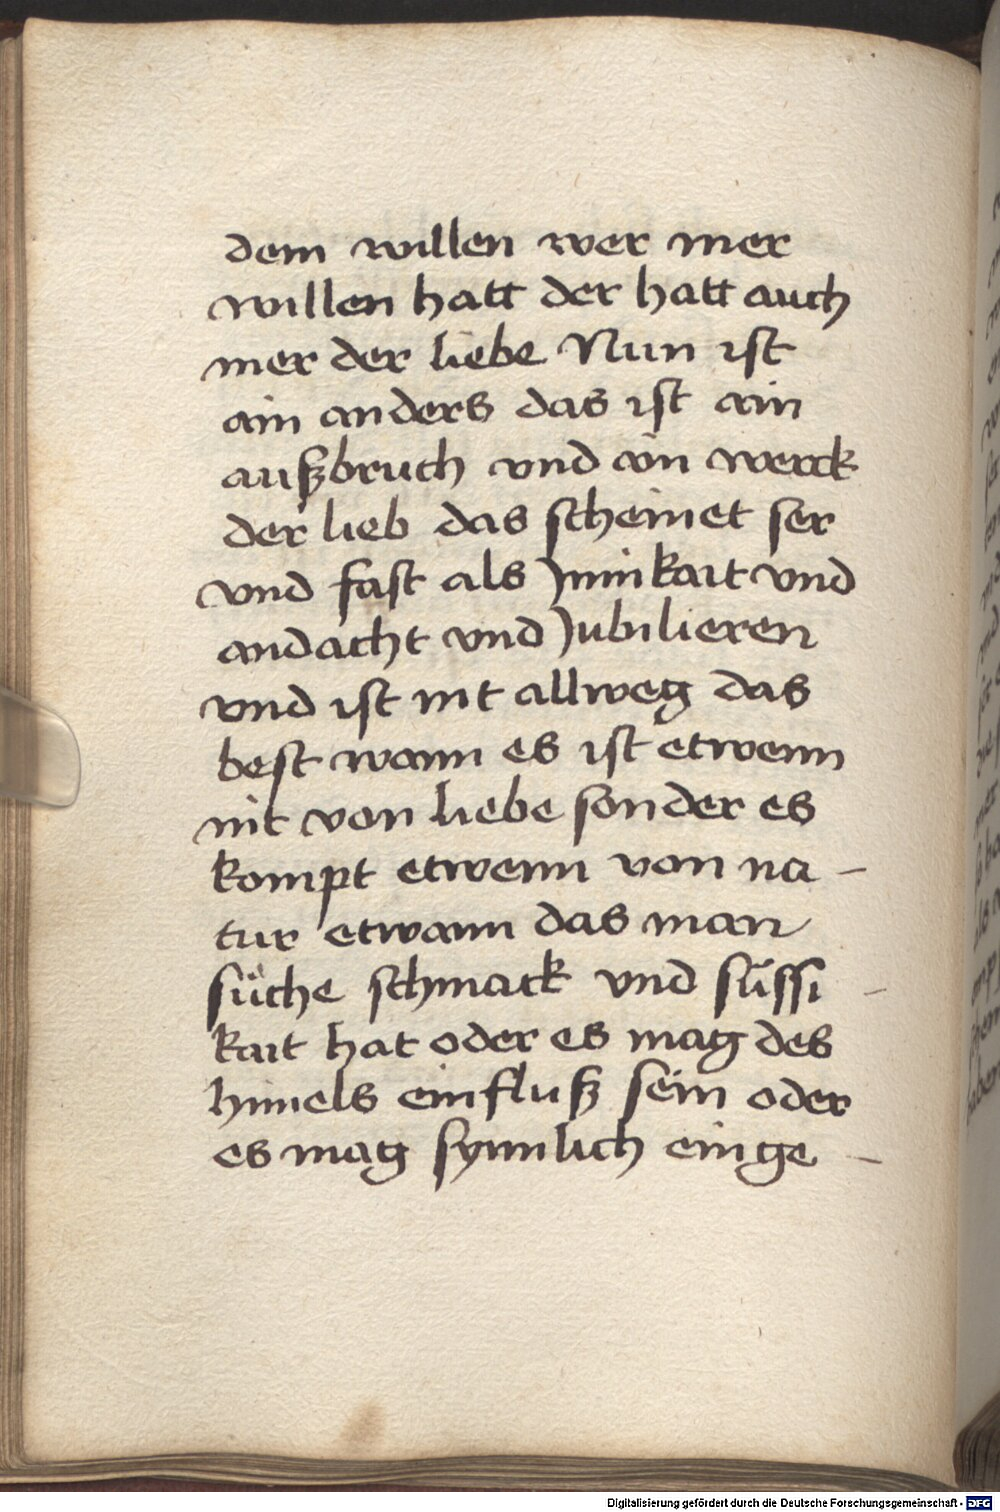 dem willen wer mer
willen hatt der hatt auch
mer der liebe Nun ist
ain anders das ist ain
außbruch vnd ain werck
der lieb das scheinet ser
vnd fast als Jnnikait vnd
andacht vnd Jubilieren
vnd ist nit allweg das
best wann es ist etwenn
nit von liebe sonder es
kompt etwenn von na-
tur etwann das man
süche schmack vnd süssi-
kait hat oder es mag des
himels einfluß sein oder
es mag synnlich einge-
Digitalisierung gefördert durch die Deutsche Forschungsgemeinschaft - DFG